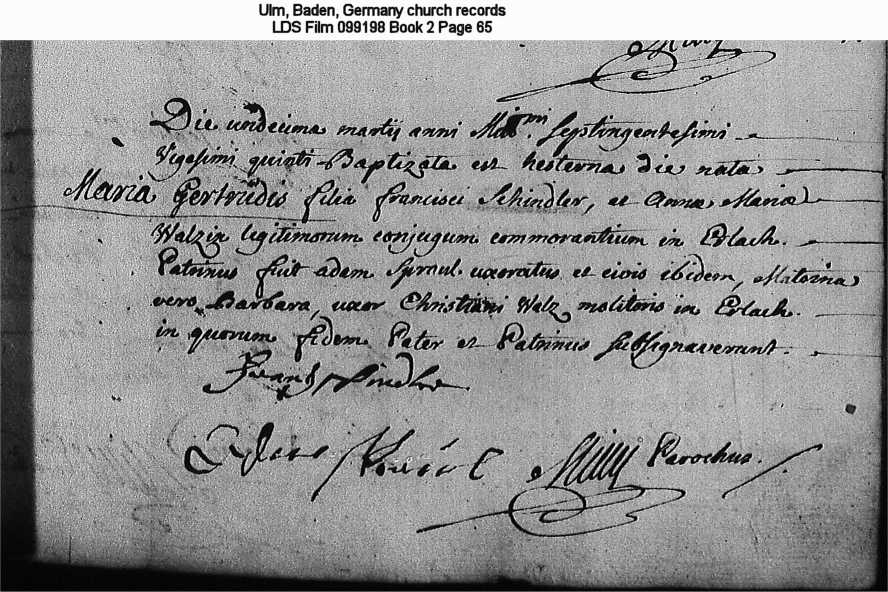 Ulm, Baden, Germany church records
LDS Film 099198 Book 2 Page 65
Die undecima martij anni Mill.mi septingentesimi
Vigesimi quinti Baptizata est hesterna die nata
Maria Gertrudis filia francisci Schindler, et Annæ Mariæ
Walzin legitimorum conjugum commorantium in Erlach.
Patrinus fuit adam Spraul uxoratus et civis ibidem, Matrina
vero Barbara, uxor Christiani Walz molitoris in Erlach.
in quorum fidem Pater et Patrinus subsignaverunt.
Frantz Schindler
Adam
Parochus.